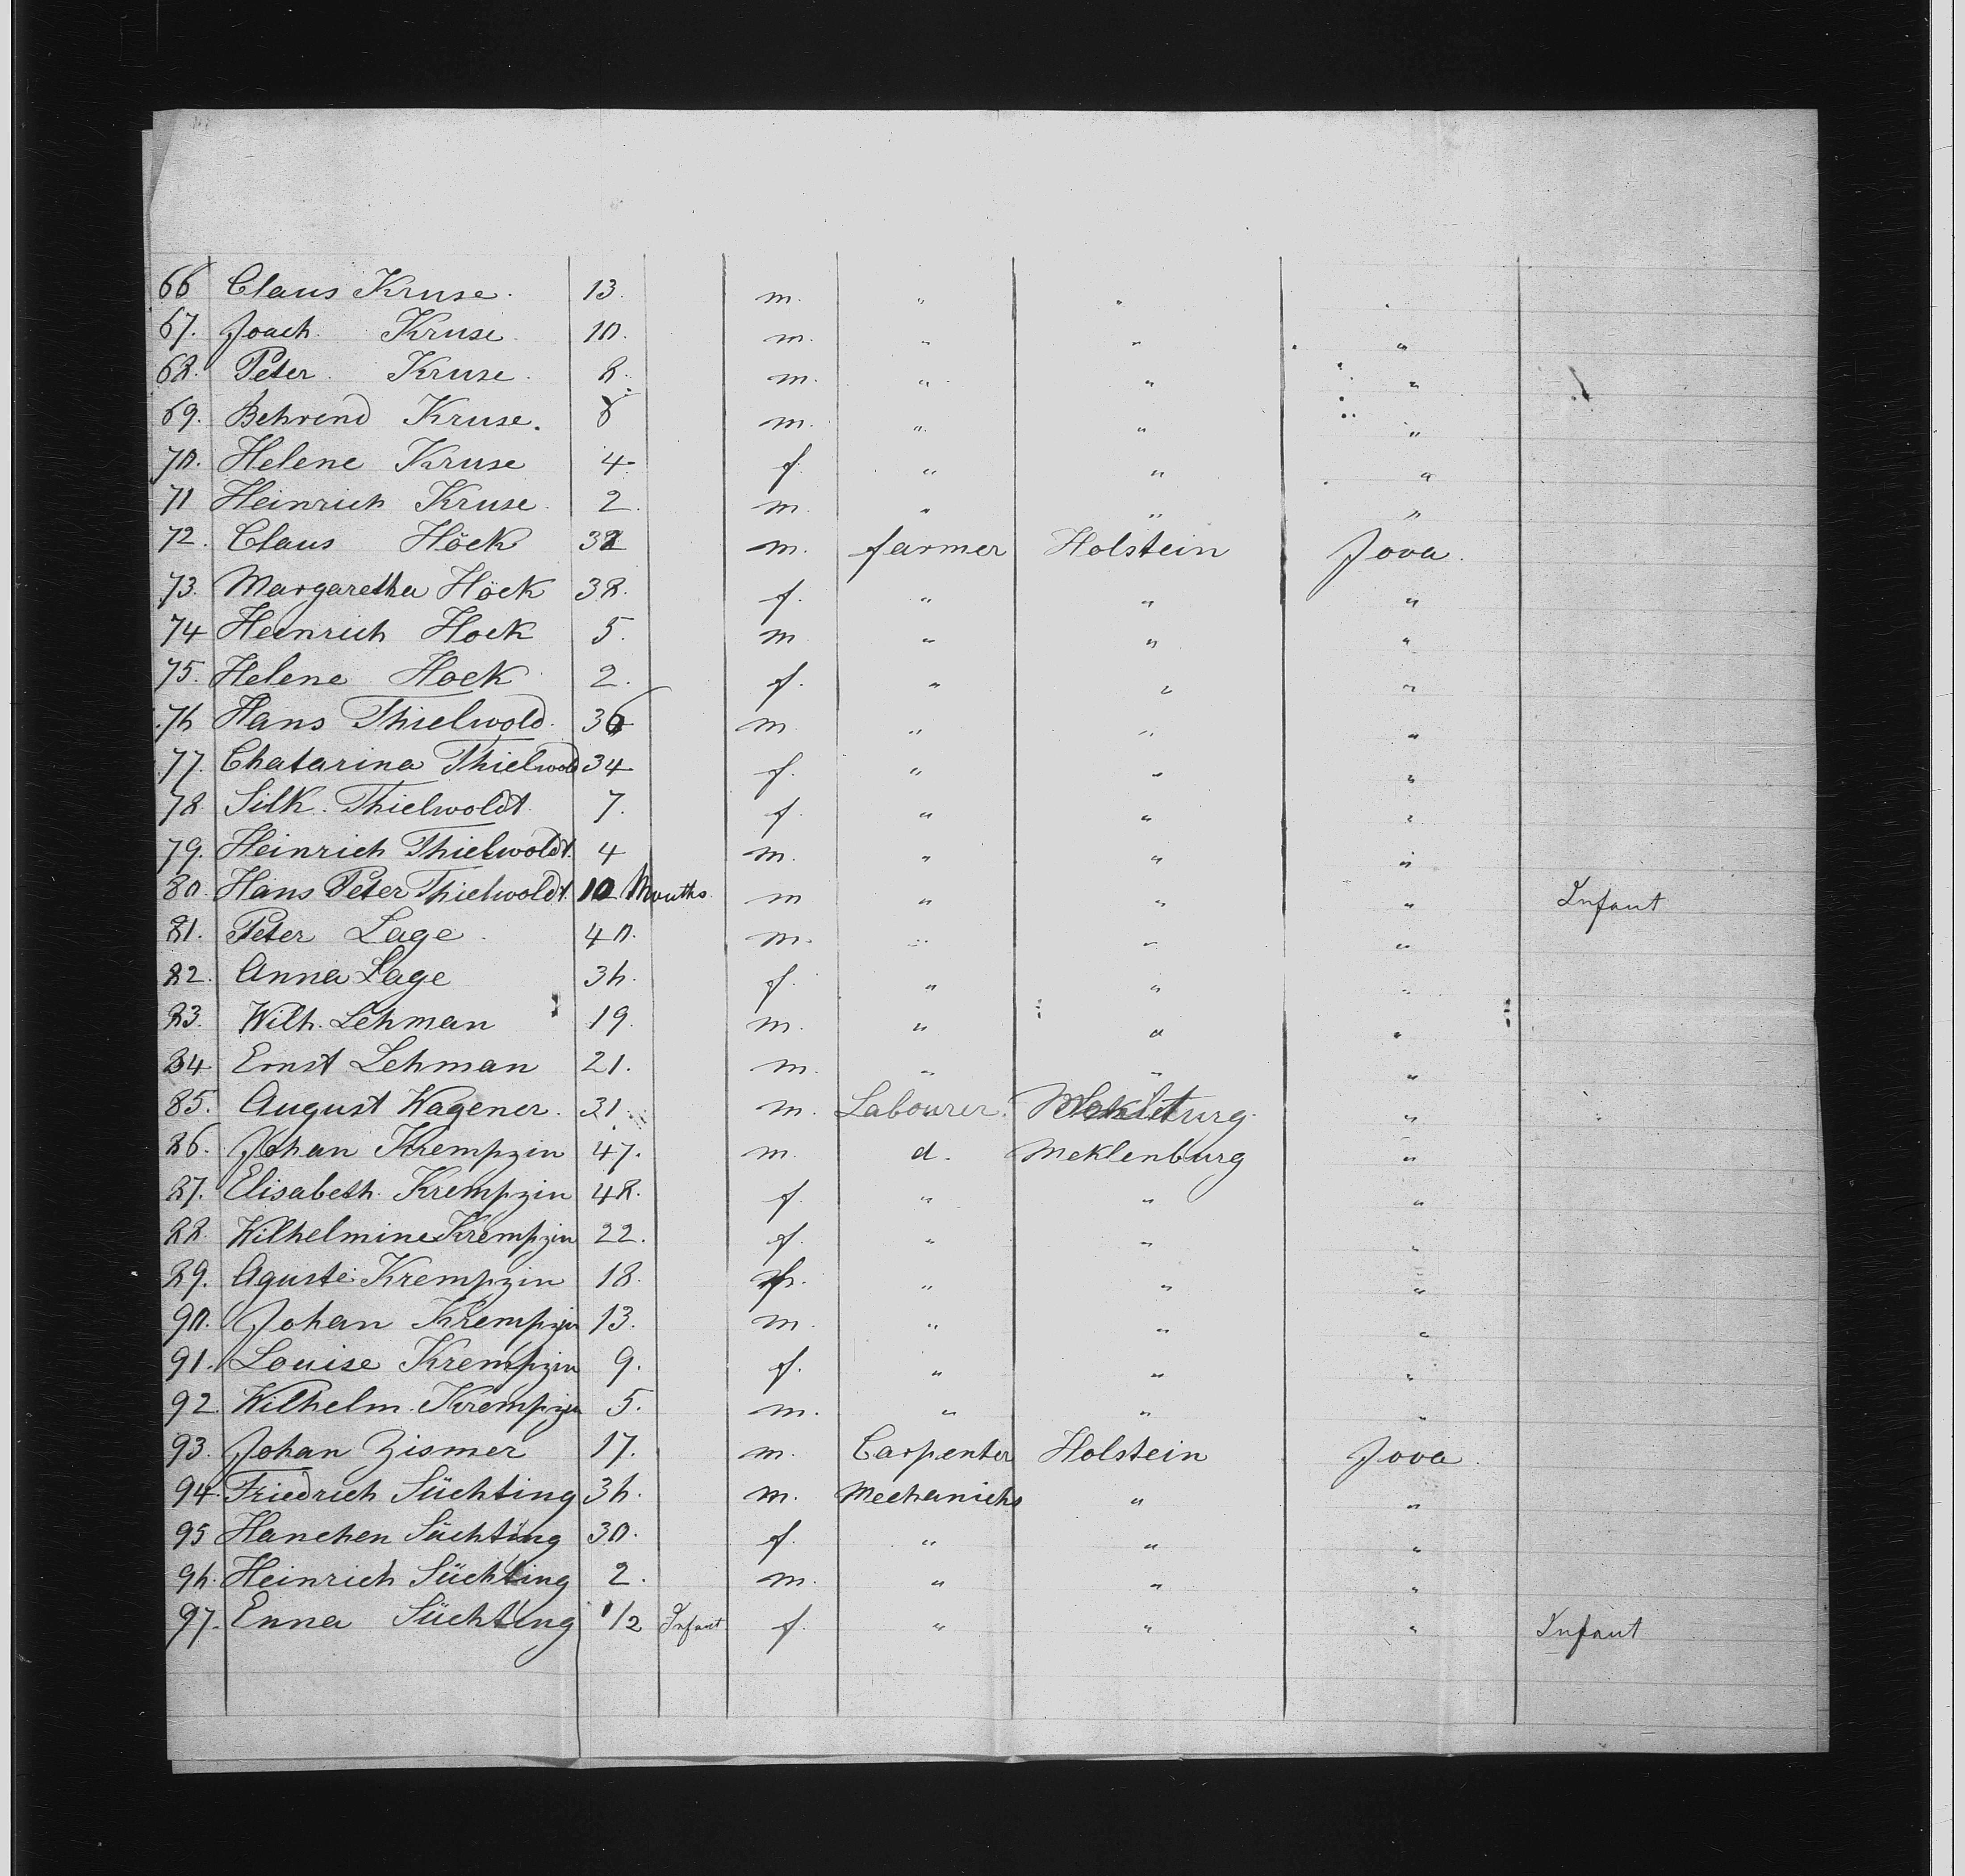 66 Claus Kruse. 13. m. " " "
67. Joach. Kruse. 10. m. " " "
68. Peter. Kruse. 8. m. " " "
69. Behrend Kruse. m. " " "
70. Helene Kruse 4. f. " " "
71 Heinrich Kruse. 2. m. " " "
72. Claus Höck m. farmer Holstein Jova.
73. Margaretha Höck 38. f. " " "
74 Heinrich Hock 5. m " " "
75. Helene Hock 2. f. " " "
76 Hans Thielwold. 36 m " " "
77. Chatarina Thielwold 34 f. " " "
78. Silk. Thielwoldt 7. f. " " "
79. Heinrich Thielwoldt. 4 m. " " "
80. Hans Peter Thielwoldt. 10 Months. m " " " Infant
81. Peter Lage. 40. m. " " "
82. Anna Lage 36. f. " " "
83. Wilh. Lehman 19. m. " " "
84 Ernst Lehman 21. m. " " "
85. August Wagener. 31. m. Labourer. "
86. Johan Krempzin 47. m. d. Meklenburg "
87. Elisabeth. Krempzin 48. f. " " "
88. Wilhelmine Krempzin 22. f. " " "
89. Aguste Krempzin 18. f. " " "
90. Johan Krempzin 13. m. " " "
91. Louise Krempzin 9. f. " " "
92. Wilhelm. Krempzin 5. m. " " "
93. Johan Zismer 17. m. Carpenter Holstein Jova.
94. Friedrich Süchting 36. m. Mechanichs " "
95 Hanchen Süchting 30. f. " " "
96. Heinrich Süchting 2. m. " " "
97. Enna Süchting 1/2 Infant f. " " " Infant